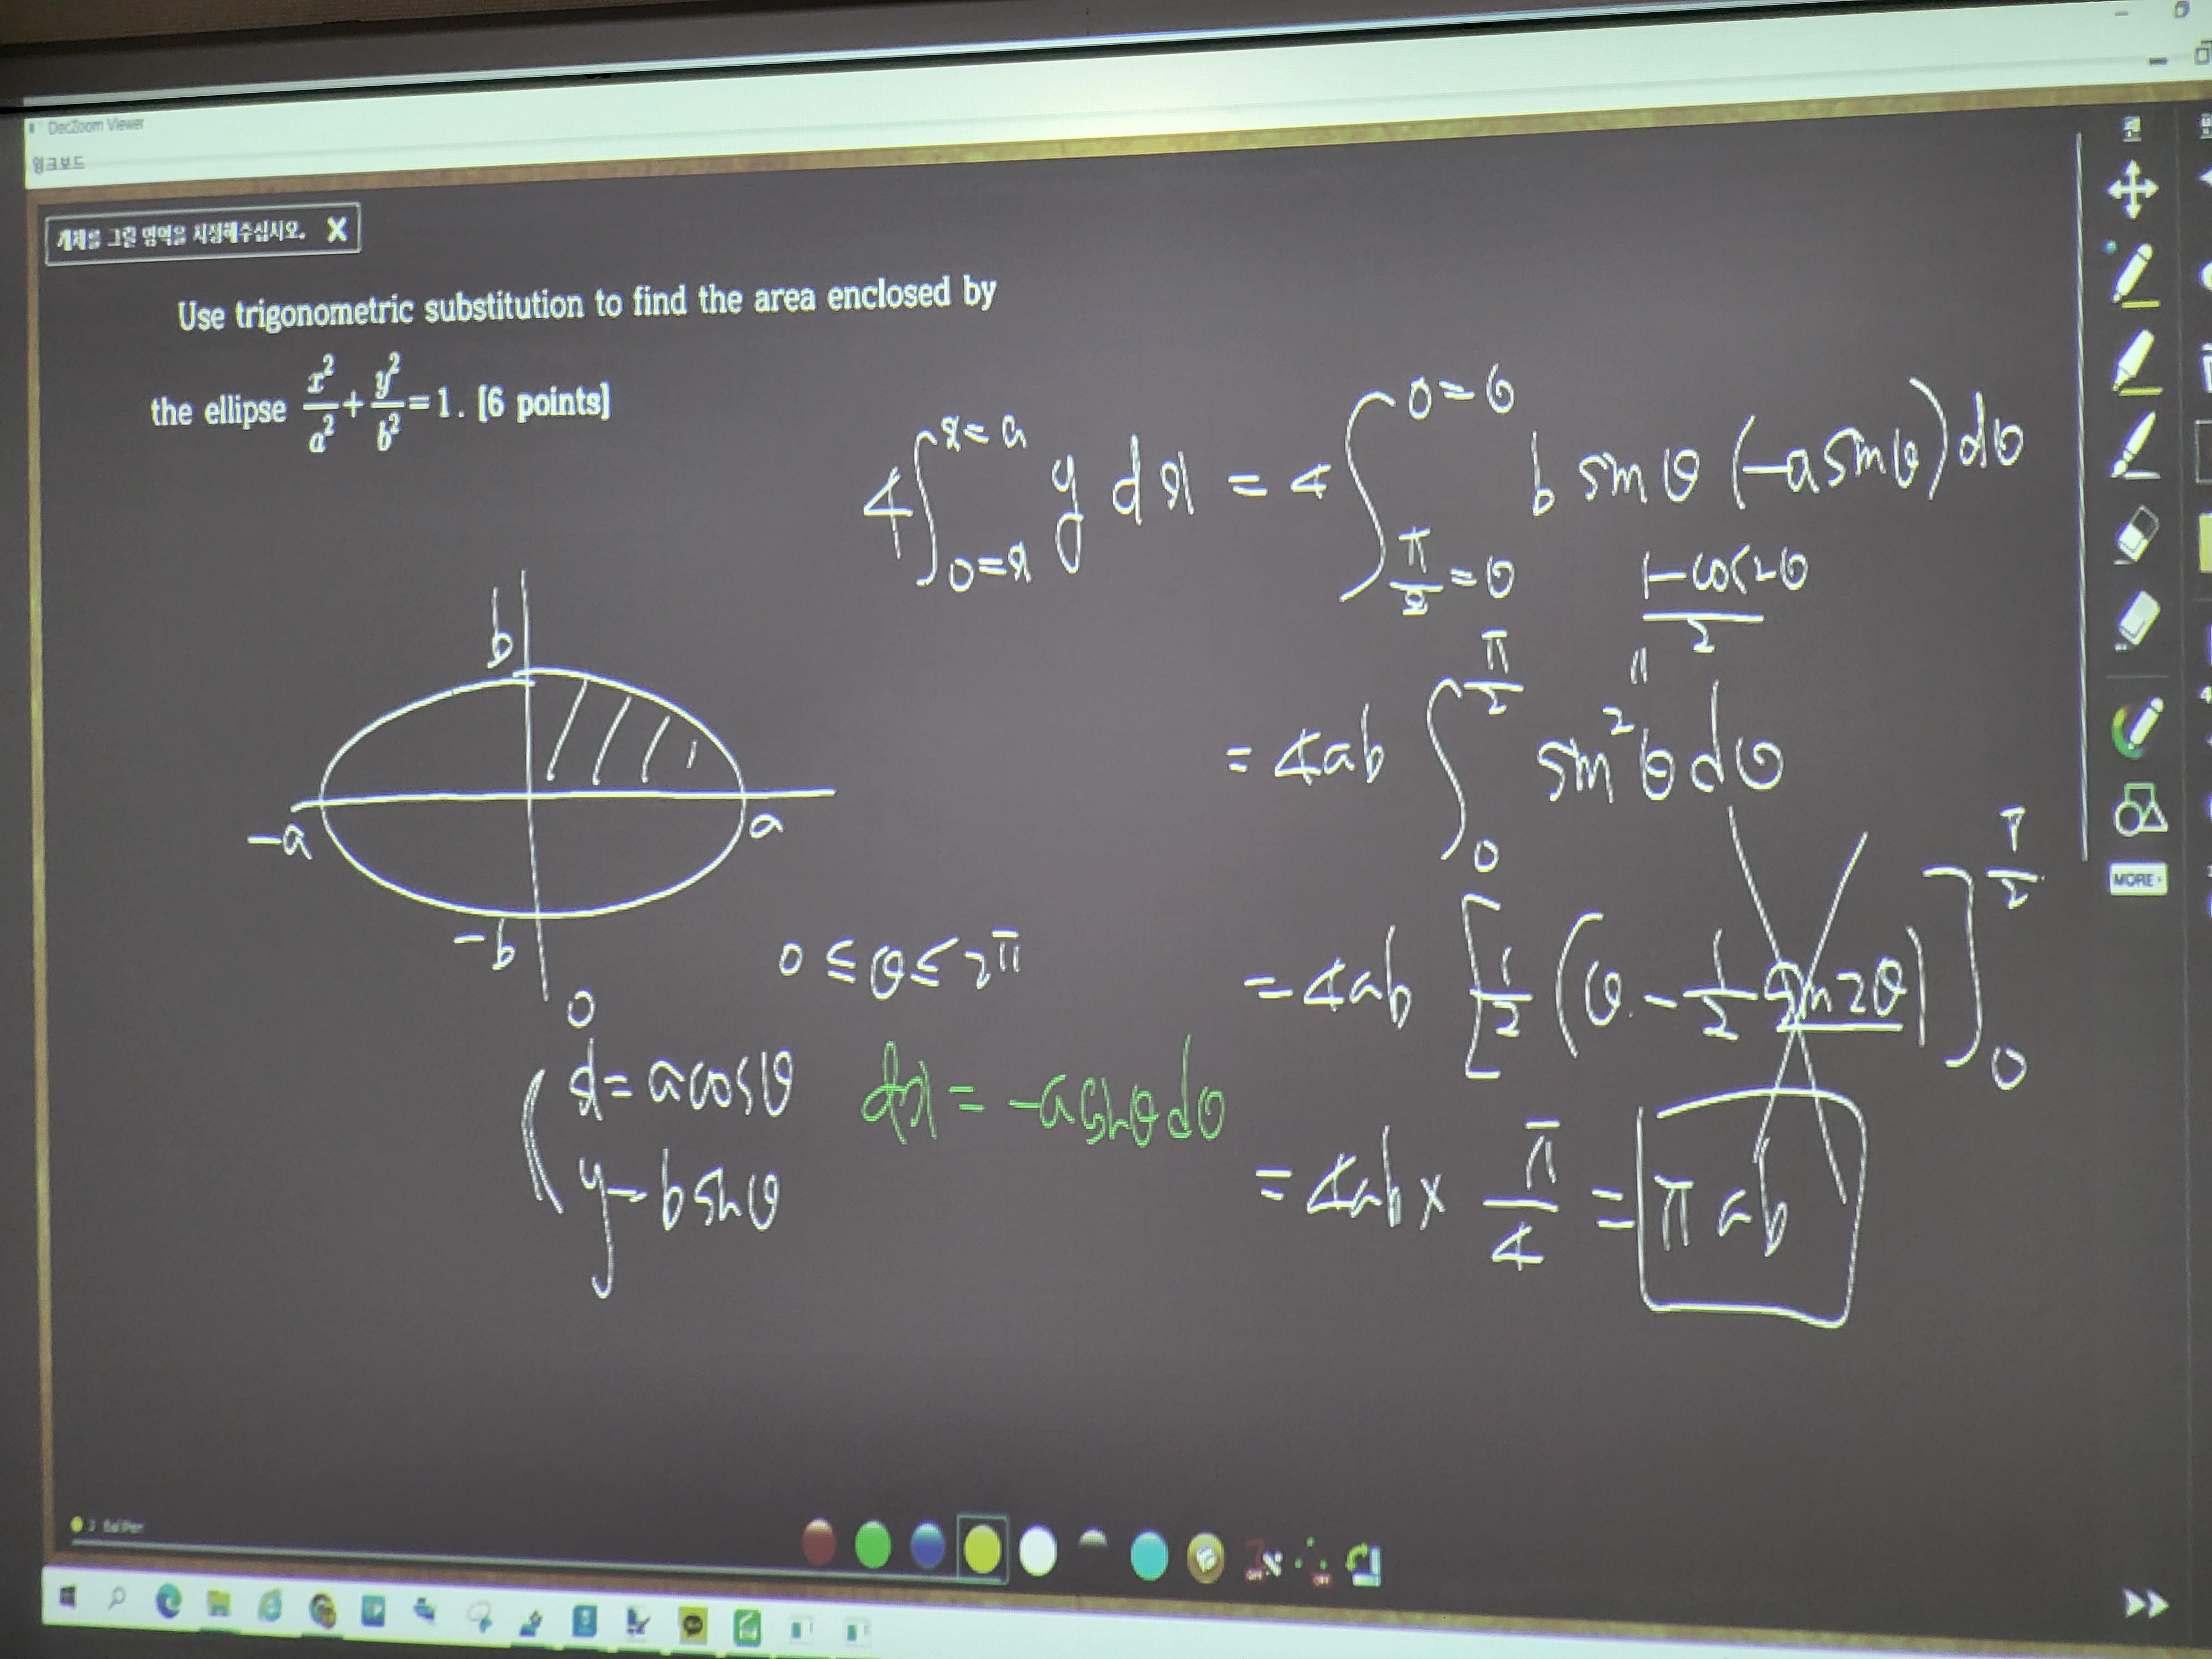 DocZoom Viewer
윙크보드
개체를 그릴 영역을 지정해주십시오. X
Use trigonometric substitution to find the area enclosed by
the ellipse x²/a² + y²/b² = 1. [6 points]
4∫_{0=x}^{x=a} y dx = 4∫_{π/2=θ}^{0=θ} b sinθ (-a sinθ) dθ
1-cos2θ / 2
"
= 4ab ∫_0^{π/2} sin²θ dθ
= 4ab [1/2 (θ - 1/2 sin2θ)]_0^{π/2}
= 4ab × π/4 = πab
b
-a
a
-b
0 ≤ θ ≤ 2π
0
x = a cosθ
dx = -a sinθ dθ
y = b sinθ
MORE